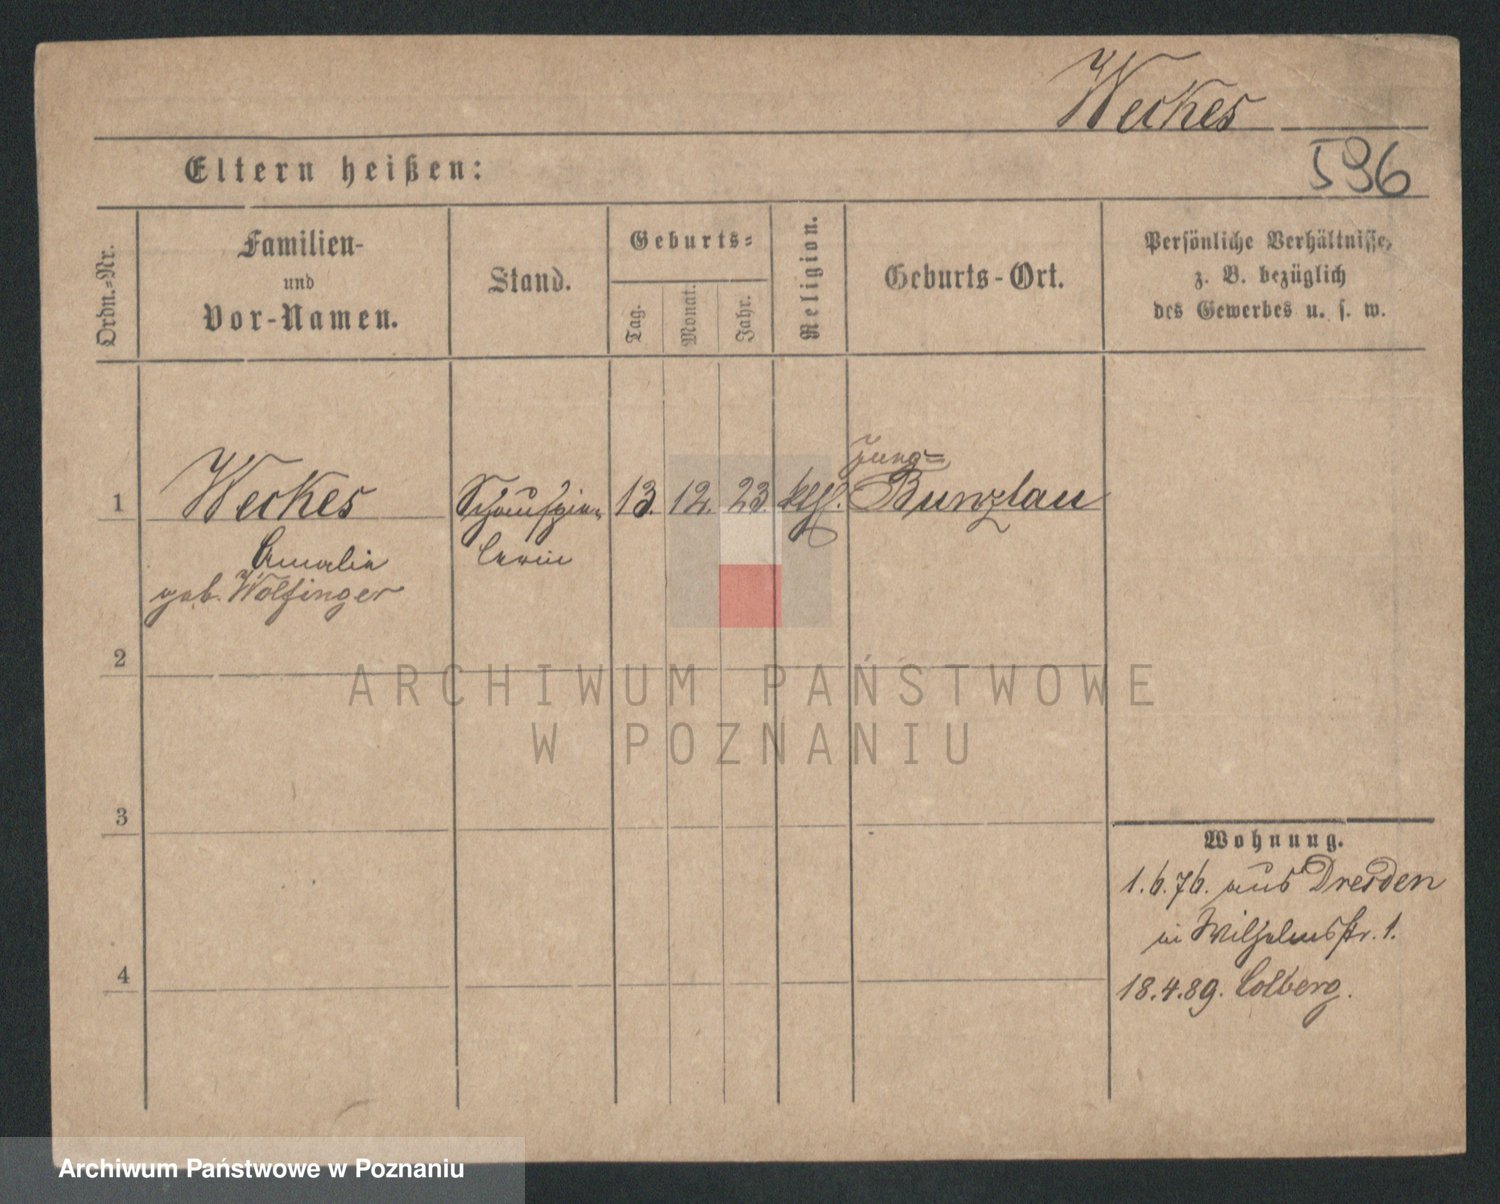 Weckes
Eltern heißen:
596
Ordn.-Nr.
Familien-
und
Vor-Namen.
Stand.
Geburts-
Tag.
Monat.
Jahr.
Religion.
Geburts-Ort.
Persönliche Verhältnisse,
z. B. bezüglich
des Gewerbes u. s. w.
Jung-
1 Weckes Schauspie- 13. 12. 23. kth. Bunzlau
Amalie lerin
geb. Wolfinger
2
ARCHIWUM PAŃSTWOWE
W POZNANIU
3
Wohnung.
1.6.76. aus Dresden
in Wilhelmsstr. 1.
4
18.4.89. Colberg.
Archiwum Państwowe w Poznaniu